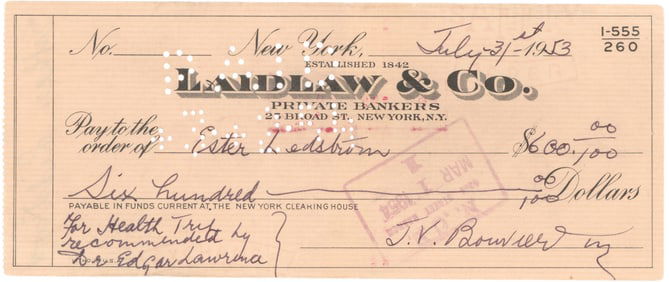 No. New York, July 31st 1953
1-555
260
ESTABLISHED 1842
LAIDLAW & CO.
PRIVATE BANKERS
25 BROAD ST. NEW YORK, N.Y.
Pay to the
order of Ester Ledstrom $600.00/100
Six hundred 00/100 Dollars
PAYABLE IN FUNDS CURRENT AT THE NEW YORK CLEARING HOUSE
For Health Trip
recommended by
Dr Edgar Lawrence
J. V. Bouvier
MAR 1 1954